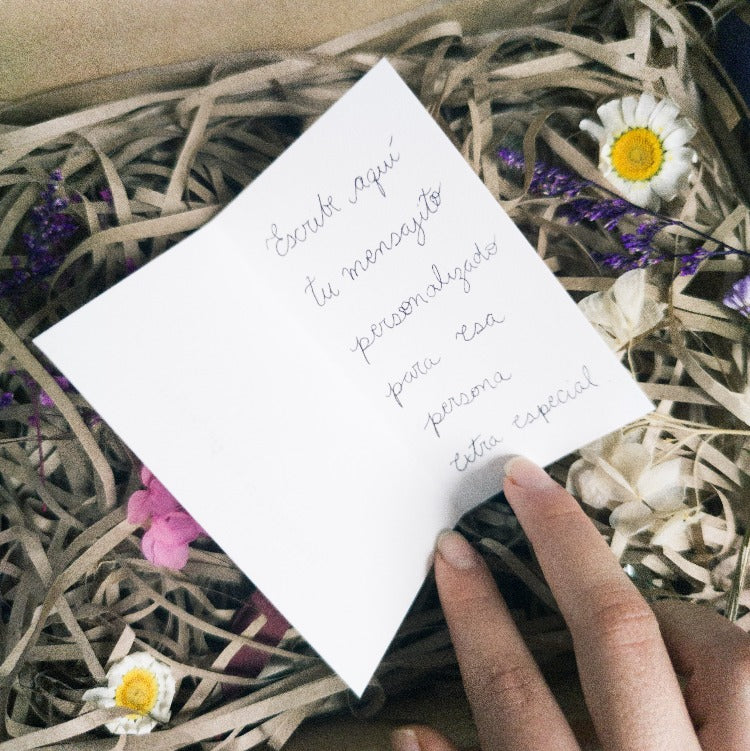 Escribe aquí
tu mensajito
personalizado
para esa
persona
extra especial